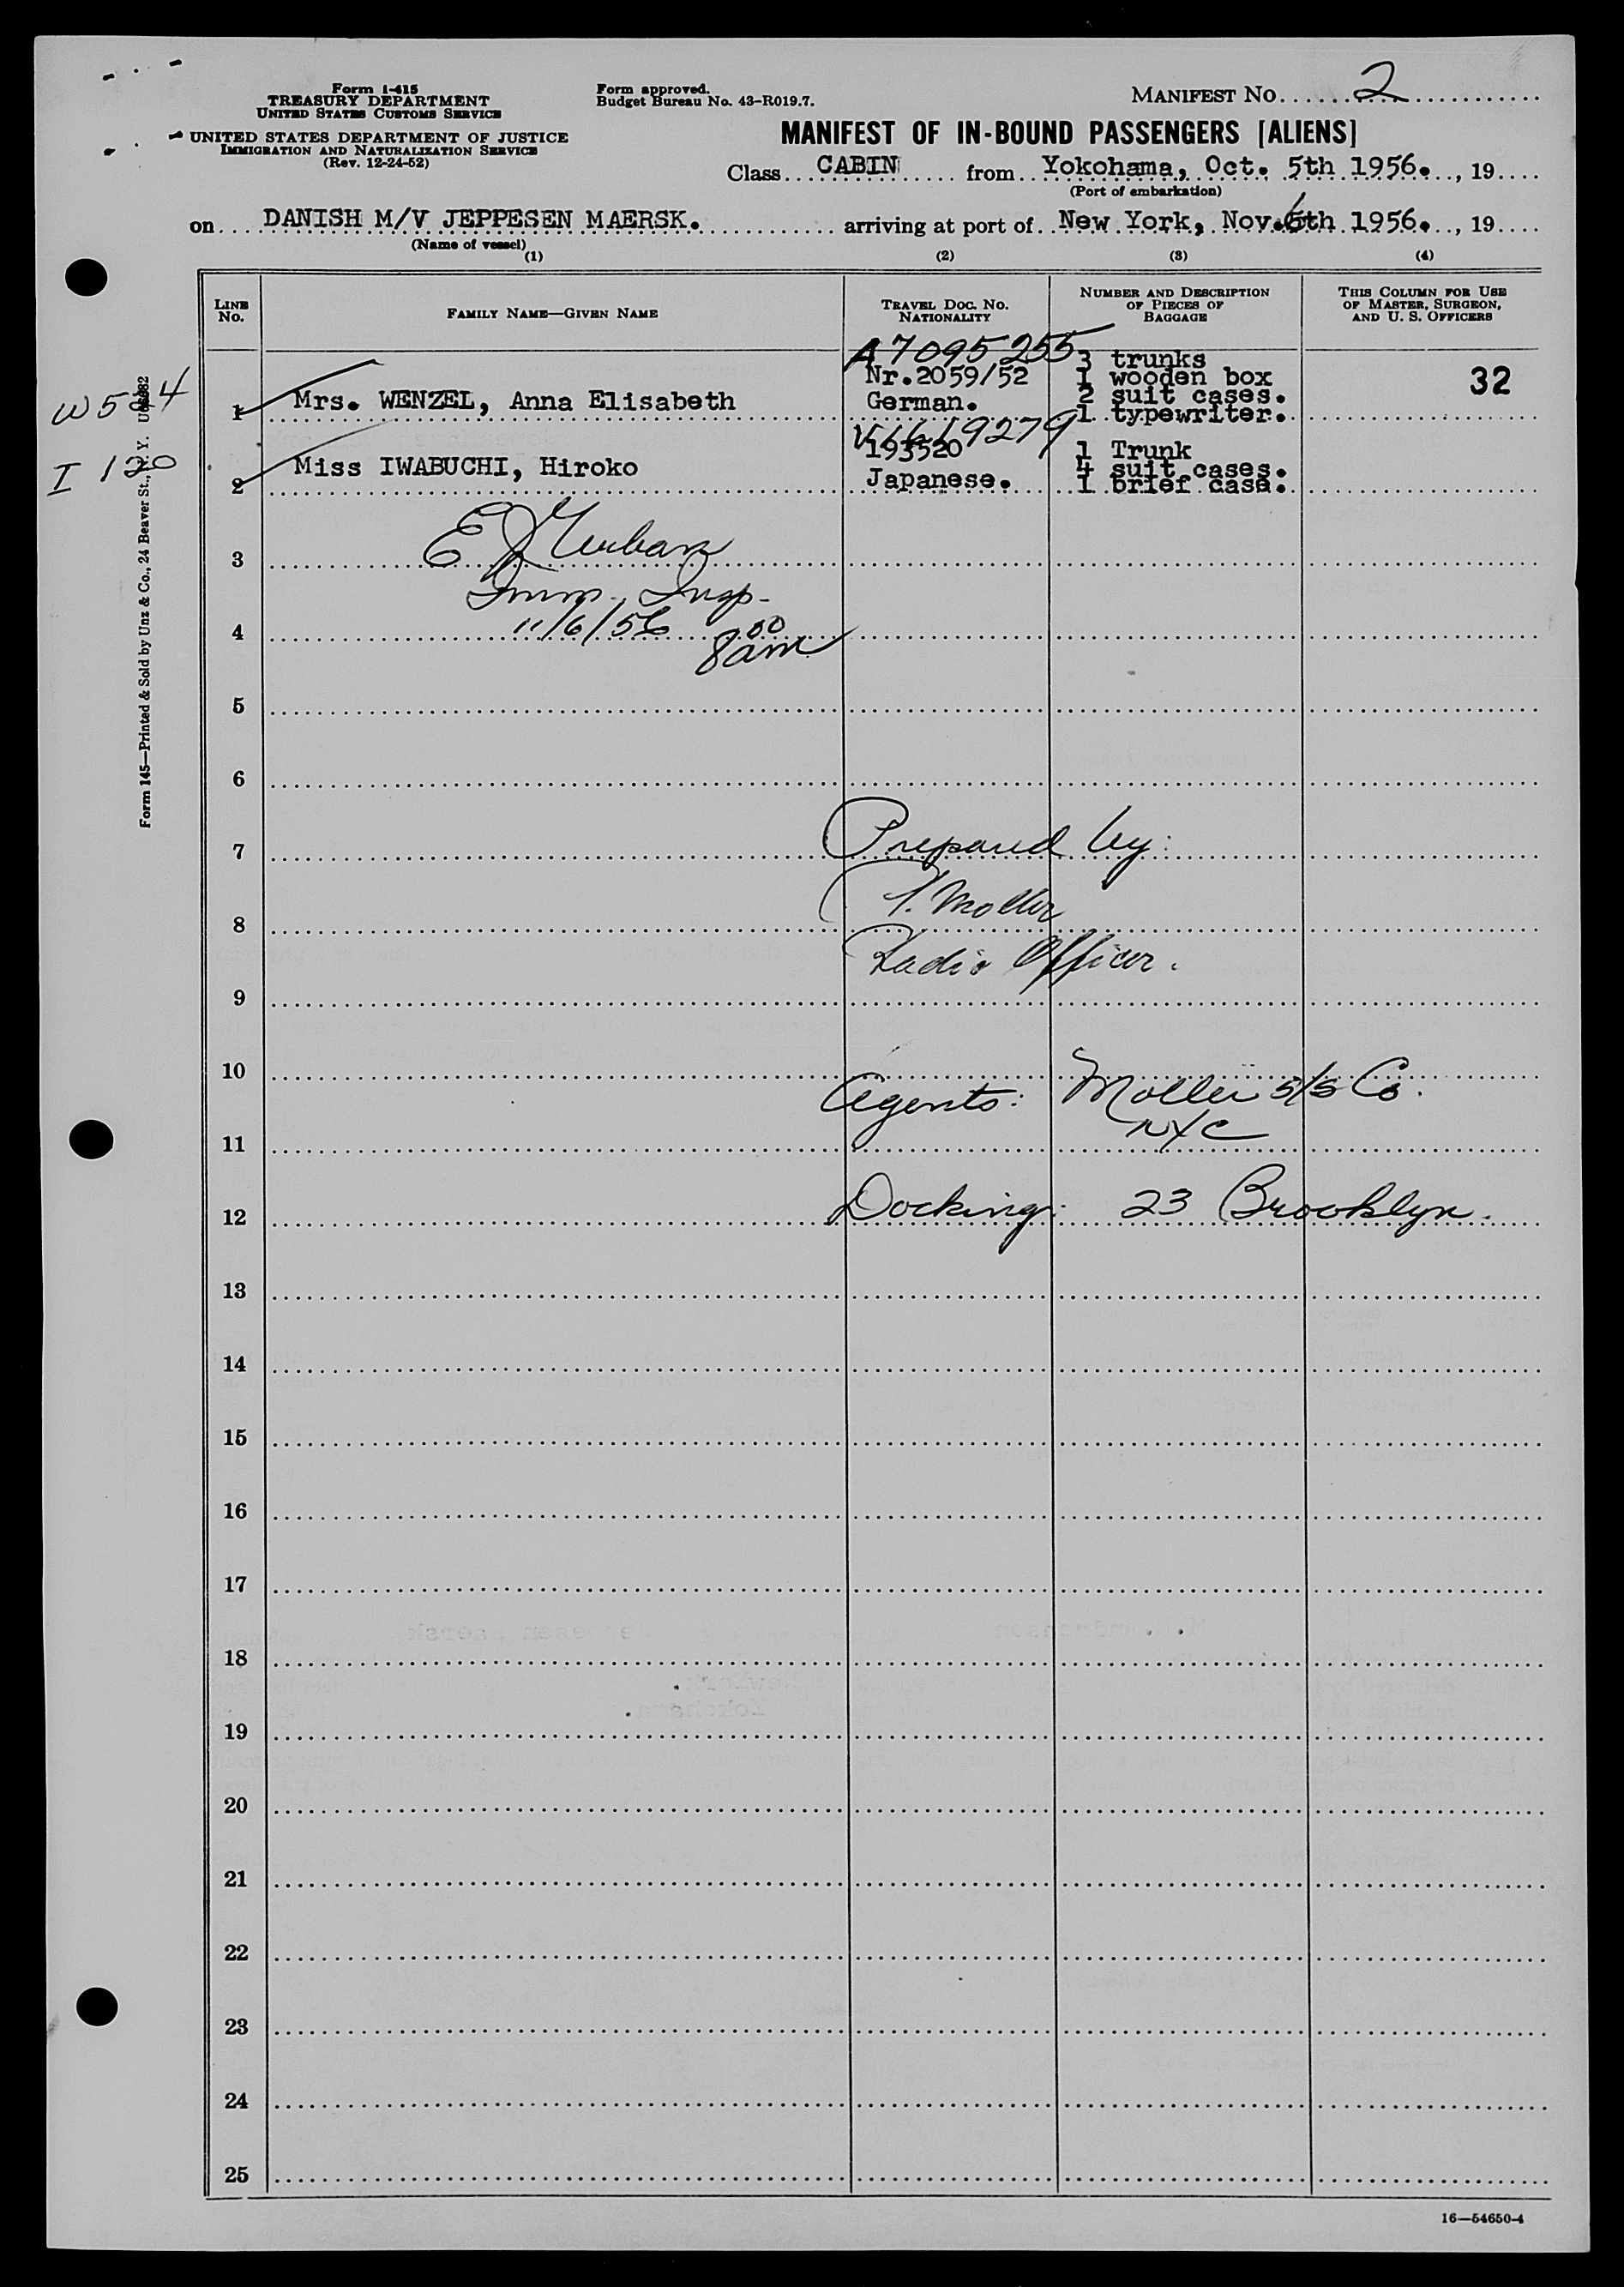 Form I-415
TREASURY DEPARTMENT
UNITED STATES CUSTOMS SERVICE
UNITED STATES DEPARTMENT OF JUSTICE
IMMIGRATION AND NATURALIZATION SERVICE
(Rev. 12-24-52)
Form approved.
Budget Bureau No. 43-R019.7.
MANIFEST NO. 2
MANIFEST OF IN-BOUND PASSENGERS [ALIENS]
Class CABIN from Yokohama, Oct. 5th 1956. , 19
(Port of embarkation)
on DANISH M/V JEPPESEN MAERSK. arriving at port of New York, Nov. 6th 1956. , 19
(Name of vessel)
(1) (2) (3) (4)
LINE NO.
FAMILY NAME—GIVEN NAME
TRAVEL DOC. NO.
NATIONALITY
NUMBER AND DESCRIPTION
OF PIECES OF
BAGGAGE
THIS COLUMN FOR USE
OF MASTER, SURGEON,
AND U. S. OFFICERS
W 524
I 120
1 Mrs. WENZEL, Anna Elisabeth
A7095255
Nr.2059/52
German.
3 trunks
1 wooden box
2 suit cases.
1 typewriter.
32
2 Miss IWABUCHI, Hiroko
193520
Japanese.
1 Trunk
4 suit cases.
1 brief case.
Imm. Insp.
3
11/6/56 8 00 am
4
5
6
7 Prepared by:
Moller
8
Radio Officer.
9
10
Agents: Moller S/S Co.
NYC
11
12 Docking: 23 Brooklyn.
13
14
15
16
17
18
19
20
21
22
23
24
25
16—54650-4
Form 145—Printed & Sold by Unz & Co., 24 Beaver St., N. Y.